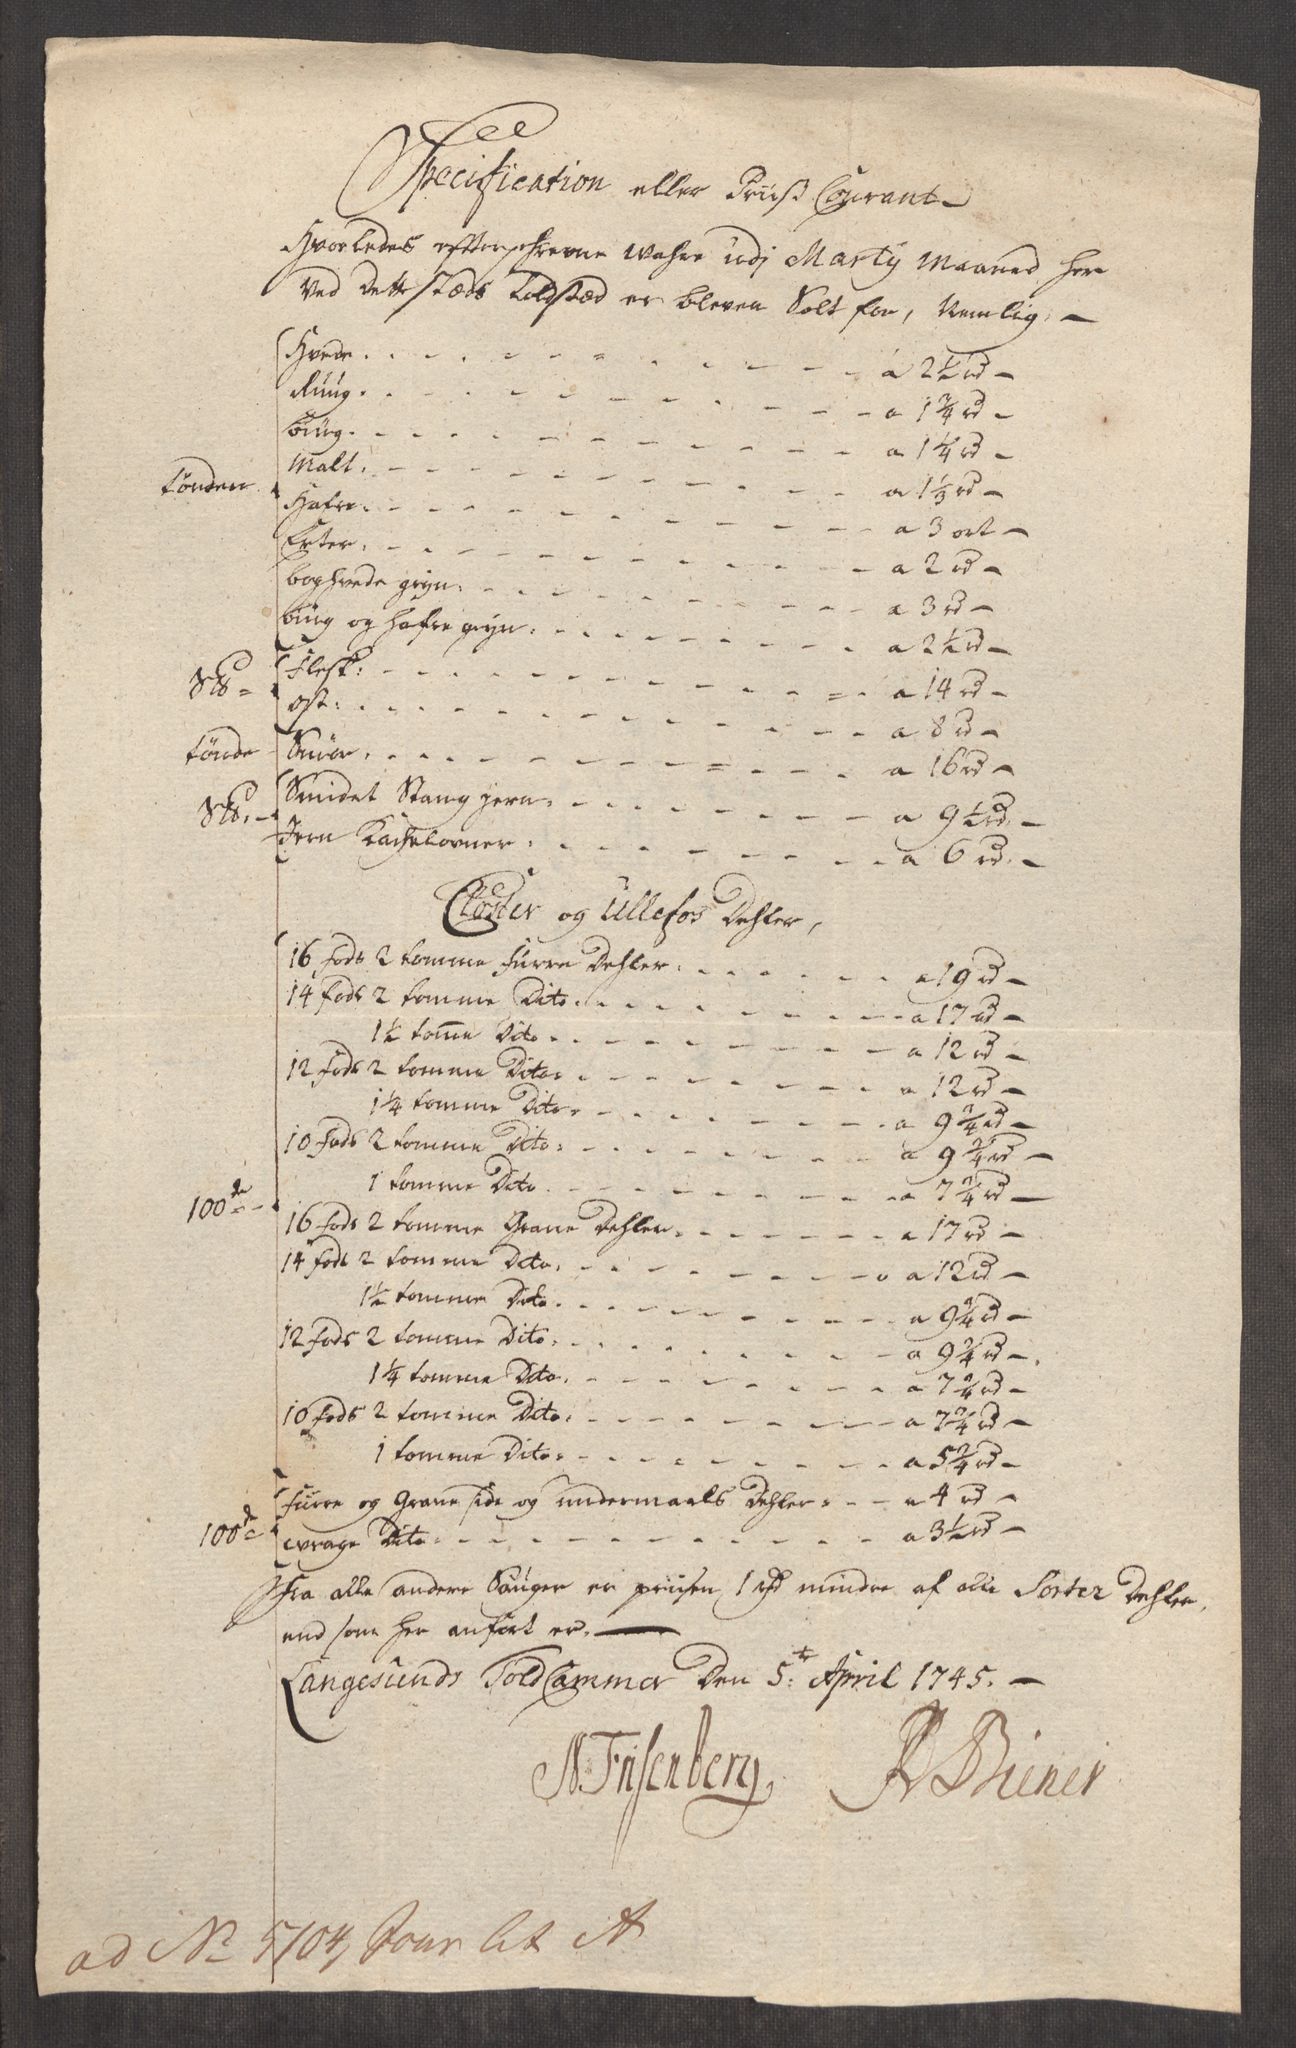 Specification eller Priiß Courant
Hvorledes efterschrevne Wahre udj Marty Maaned her
Ved dette stæds Toldstæd er bleven Solt for, Nemlig:
Hvede. a 2½ rd
Rüug. a 1¾ rd
büug. a 1¼ rd
Malt. a 1⅓ rd
tønden
Hafre. a 3 ort
Erter. a 2 rd
boghvede gryn. a 3 rd
büug og hafre gryn. a 2½ rd
S℔ Flesk: a 14 rd
Ost: a 8 rd
tønde Smör. a 16 rd
S℔ Smidet Stang jern. a 9½ rd.
Jern Kachelovner. a 6 rd.
Closter og Ullefos Dehler,
16 fods 2 tomme furre Dehler. a 19 rd
14 fods 2 tomme Dito. a 17 rd
1½ tom̅e Dito. a 12 rd
12 fods 2 tomme Dito. a 12 rd
1¼ tomme Dito. a 9¾ rd
10 fods 2 tomme Dito. a 9¾ rd
1 tomme Dito a 7¾ rd
100de
16 fods 2 tomme Grane Dehler. a 17 rd
14 fods 2 tomme Dito. a 12 rd
1½ tomme Dito. a 9¾ rd
12 fods 2 tomme Dito. a 9¾ rd
1¼ tomme Dito. a 7¾ rd
10 fods 2 tomme Dito. a 7¾ rd
1 tomme Dito. a 5¾ rd
furre og Grane side og undermaals Dehler. a 4 rd
100de wrage Dito. a 3½ rd
Fra alle andere Sauger er priisen 1 rd mindre af alle Sorter Dehler,
end som her anført er.
Langesunds Told Cammer Den 5t: April 1745.
N Frisenberg, Biener
ad No 5704, Jour lit A